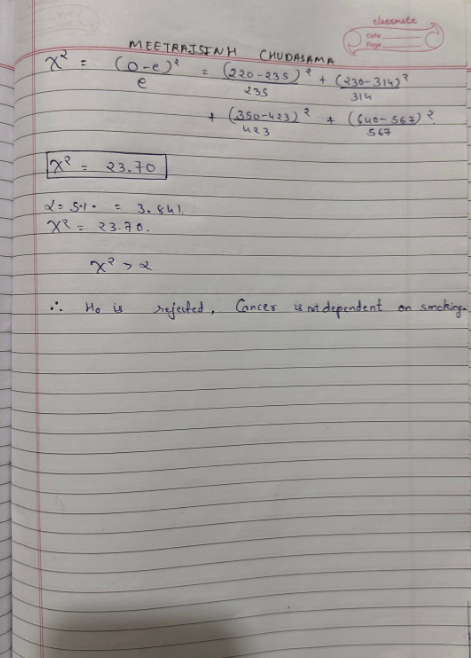 classmate
Date
Page
MEETRAJSINH CHUDASAMA
χ² = (O-e)² / e = (220-235)² / 235 + (230-314)² / 314
+ (350-423)² / 423 + (640-567)² / 567
χ² = 23.70
α = 5%. = 3.841
χ² = 23.70.
χ² > α
∴ Ho is rejected, Cancer is not dependent on smoking.